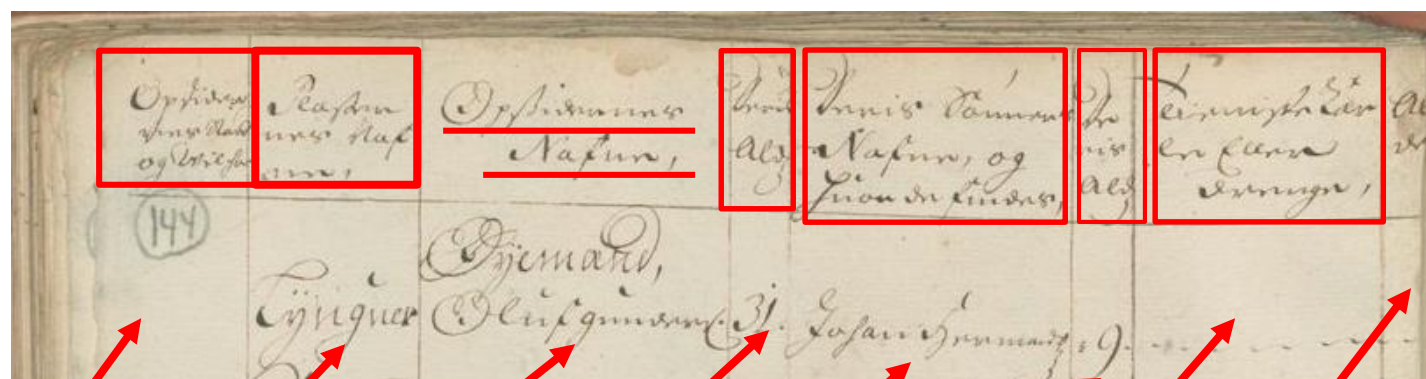 Opsidder
nes Nafn
og Wilkor
Pladser
nes Naf
ne,
Opsidernes
Nafne,
Deris
Ald
Deris Sönners
Nafne, og
huor de findes,
De
ris
Ald
Tienniste Kar
le Eller
drenge,
Al
de
144
Öyemand,
Tyngnes
Oluf gunders: 31.
Johan Hermends: 9.